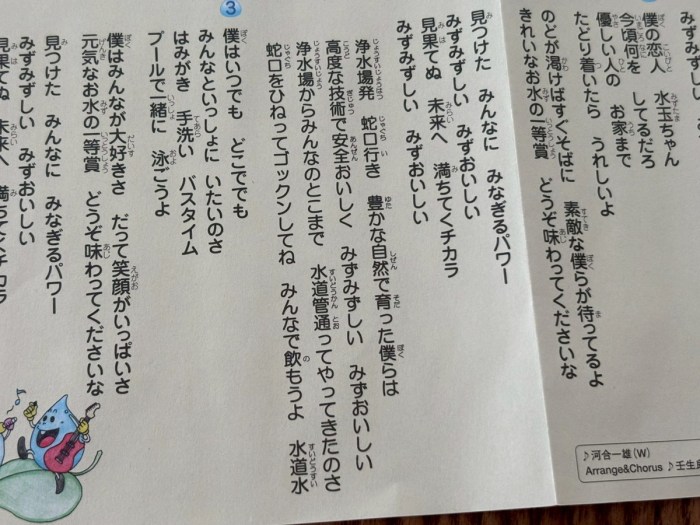 みずみずしい
僕の恋人　水玉ちゃん
今頃何を　してるだろ
優しい人の　お家まで
たどり着いたら　うれしいよ
のどが渇けばすぐそばに　素敵な僕らが待ってるよ
きれいなお水の一等賞　どうぞ味わってくださいな
見つけた　みんなに　みなぎるパワー
みずみずしい　みずおいしい
見果てぬ　未来へ　満ちてくチカラ
みずみずしい　みずおいしい
浄水場発　蛇口行き　豊かな自然で育った僕らは
高度な技術で安全おいしく　みずみずしい　みずおいしい
浄水場からみんなのとこまで　水道管通ってやってきたのさ
蛇口をひねってゴックンしてね　みんなで飲もうよ　水道水
3
僕はいつでも　どこででも
みんなといっしょに　いたいのさ
はみがき　手洗い　バスタイム
プールで一緒に　泳ごうよ
僕はみんなが大好きさ　だって笑顔がいっぱいさ
元気なお水の一等賞　どうぞ味わってくださいな
見つけた　みんなに　みなぎるパワー
みずみずしい　みずおいしい
見果てぬ　未来へ　満ちてくチカラ
♪河合一雄(W)
Arrange&Chorus ♪壬生